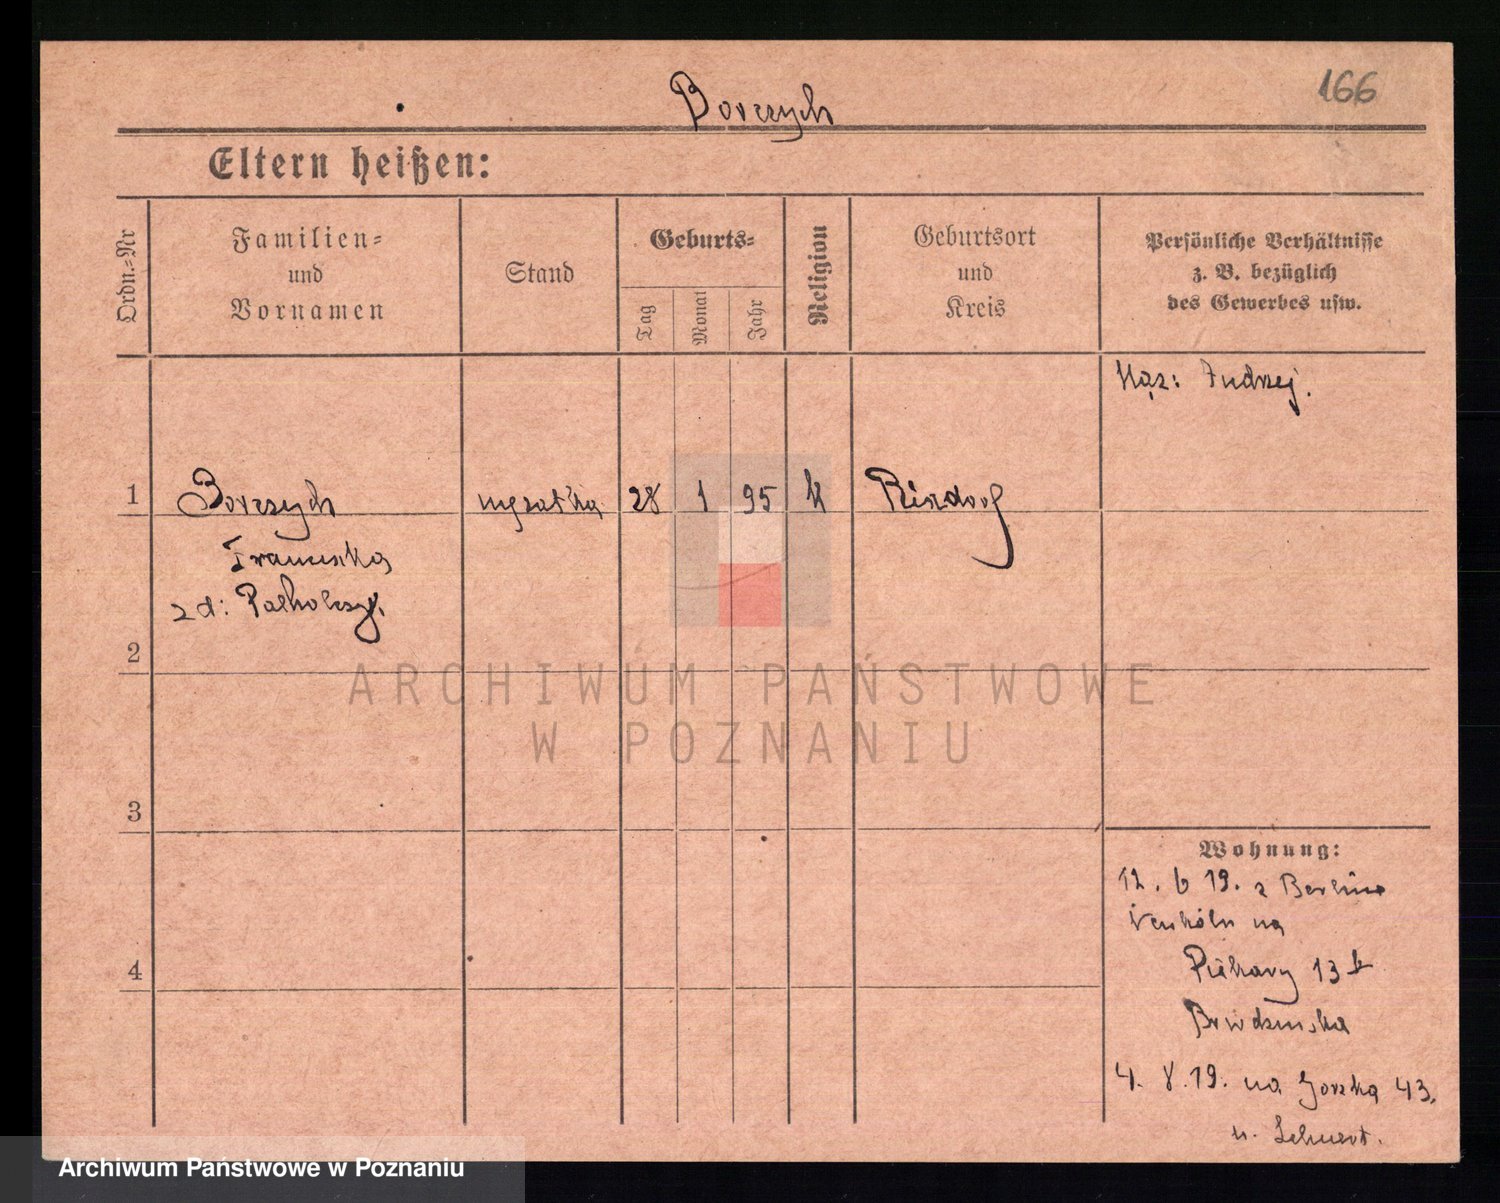 166
Borzych
Eltern heißen:
Ordn.-Nr
Familien-
und
Vornamen
Stand
Geburts-
Tag
Monat
Jahr
Religion
Geburtsort
und
Kreis
Persönliche Verhältnisse
z. B. bezüglich
des Gewerbes usw.
Mąż: Andrzej.
1 Borzych mężatka 28 1 95 k Rixdorf
Franciszka
z d:
2
3
4
Wohnung:
12. 6 19. z Berlina
Neuköln na
Piekary 13
4. 8. 19. na 43.
ARCHIWUM PAŃSTWOWE
W POZNANIU
Archiwum Państwowe w Poznaniu